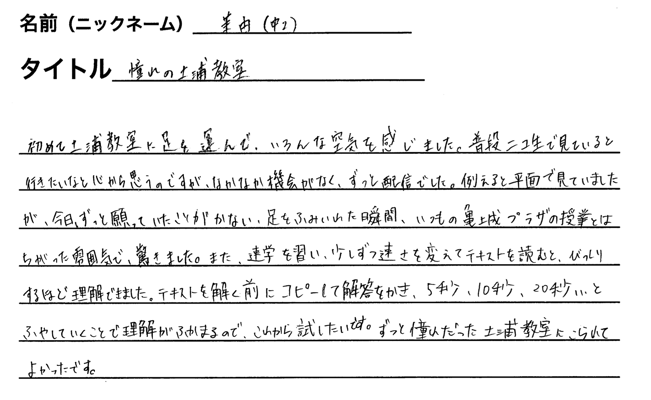 名前（ニックネーム） 茉由（中2）
タイトル 憧れの土浦教室
初めて土浦教室に足を運んで、いろんな空気を感じました。普段ニコ生で見ていると
行きたいなと心から思うのですが、なかなか機会がなく、ずっと配信でした。例えると平面で見ていました
が、今日、ずっと願っていたことがかない、足をふみいれた瞬間、いつもの亀城プラザの授業とは
ちがった雰囲気で、驚きました。また、速学を習い、少しずつ速さを変えてテキストを読むと、びっくり
するほど理解できました。テキストを解く前にコピーして解答をかき、5秒、10秒、20秒…と
ふやしていくことで理解がふかまるので、これから試したいです。ずっと憧れだった土浦教室にこられて
よかったです。